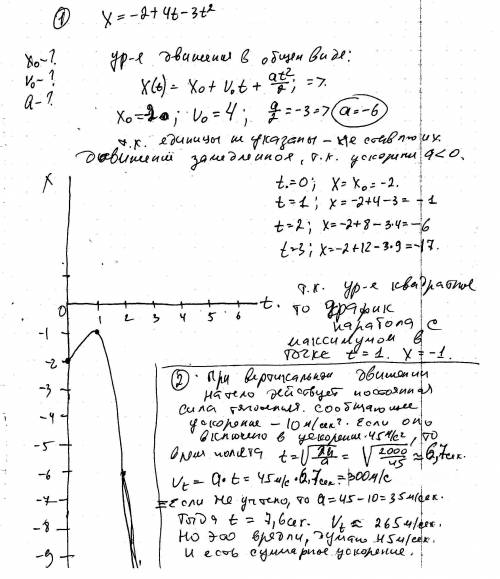 ① x = -2+4t-3t²
x₀-?
v₀-?
a-?
ур-е движения в общем виде:
x(t) = x₀ + v₀t + at²/2; =>
x₀ = -2; v₀ = 4; a/2 = -3 => a = -6
т.к. единицы не указаны – не ставлю их.
движение замедленное, т.к. ускорение a<0.
t=0; x = x₀ = -2.
t=1; x = -2+4-3 = -1
t=2; x = -2+8-3·4 = -6
t=3; x = -2+12-3·9 = -17.
т.к. ур-е квадратное
то график
парабола с
максимумом в
точке t=1. x=-1.
x
0 1 2 3 4 5 6 t.
-1
-2
-3
-4
-5
-6
-7
-8
-9
② При вертикальном движении
на тело действует постоянная
сила тяготения. сообщающее
ускорение – 10 м/сек². Если оно
включено в ускорение 45 м/с², то
время полёта t = √(2h/a) = √(2000/45) ≈ 6,7 сек.
Vt = a·t = 45 м/с · 6,7 сек = 300 м/с
= Если не учтено, то a = 45-10 = 35 м/сек.
Тогда t = 7,6 сек. Vt ≈ 265 м/сек.
Но это врядли, думаю 45 м/сек.
и есть суммарное ускорение.